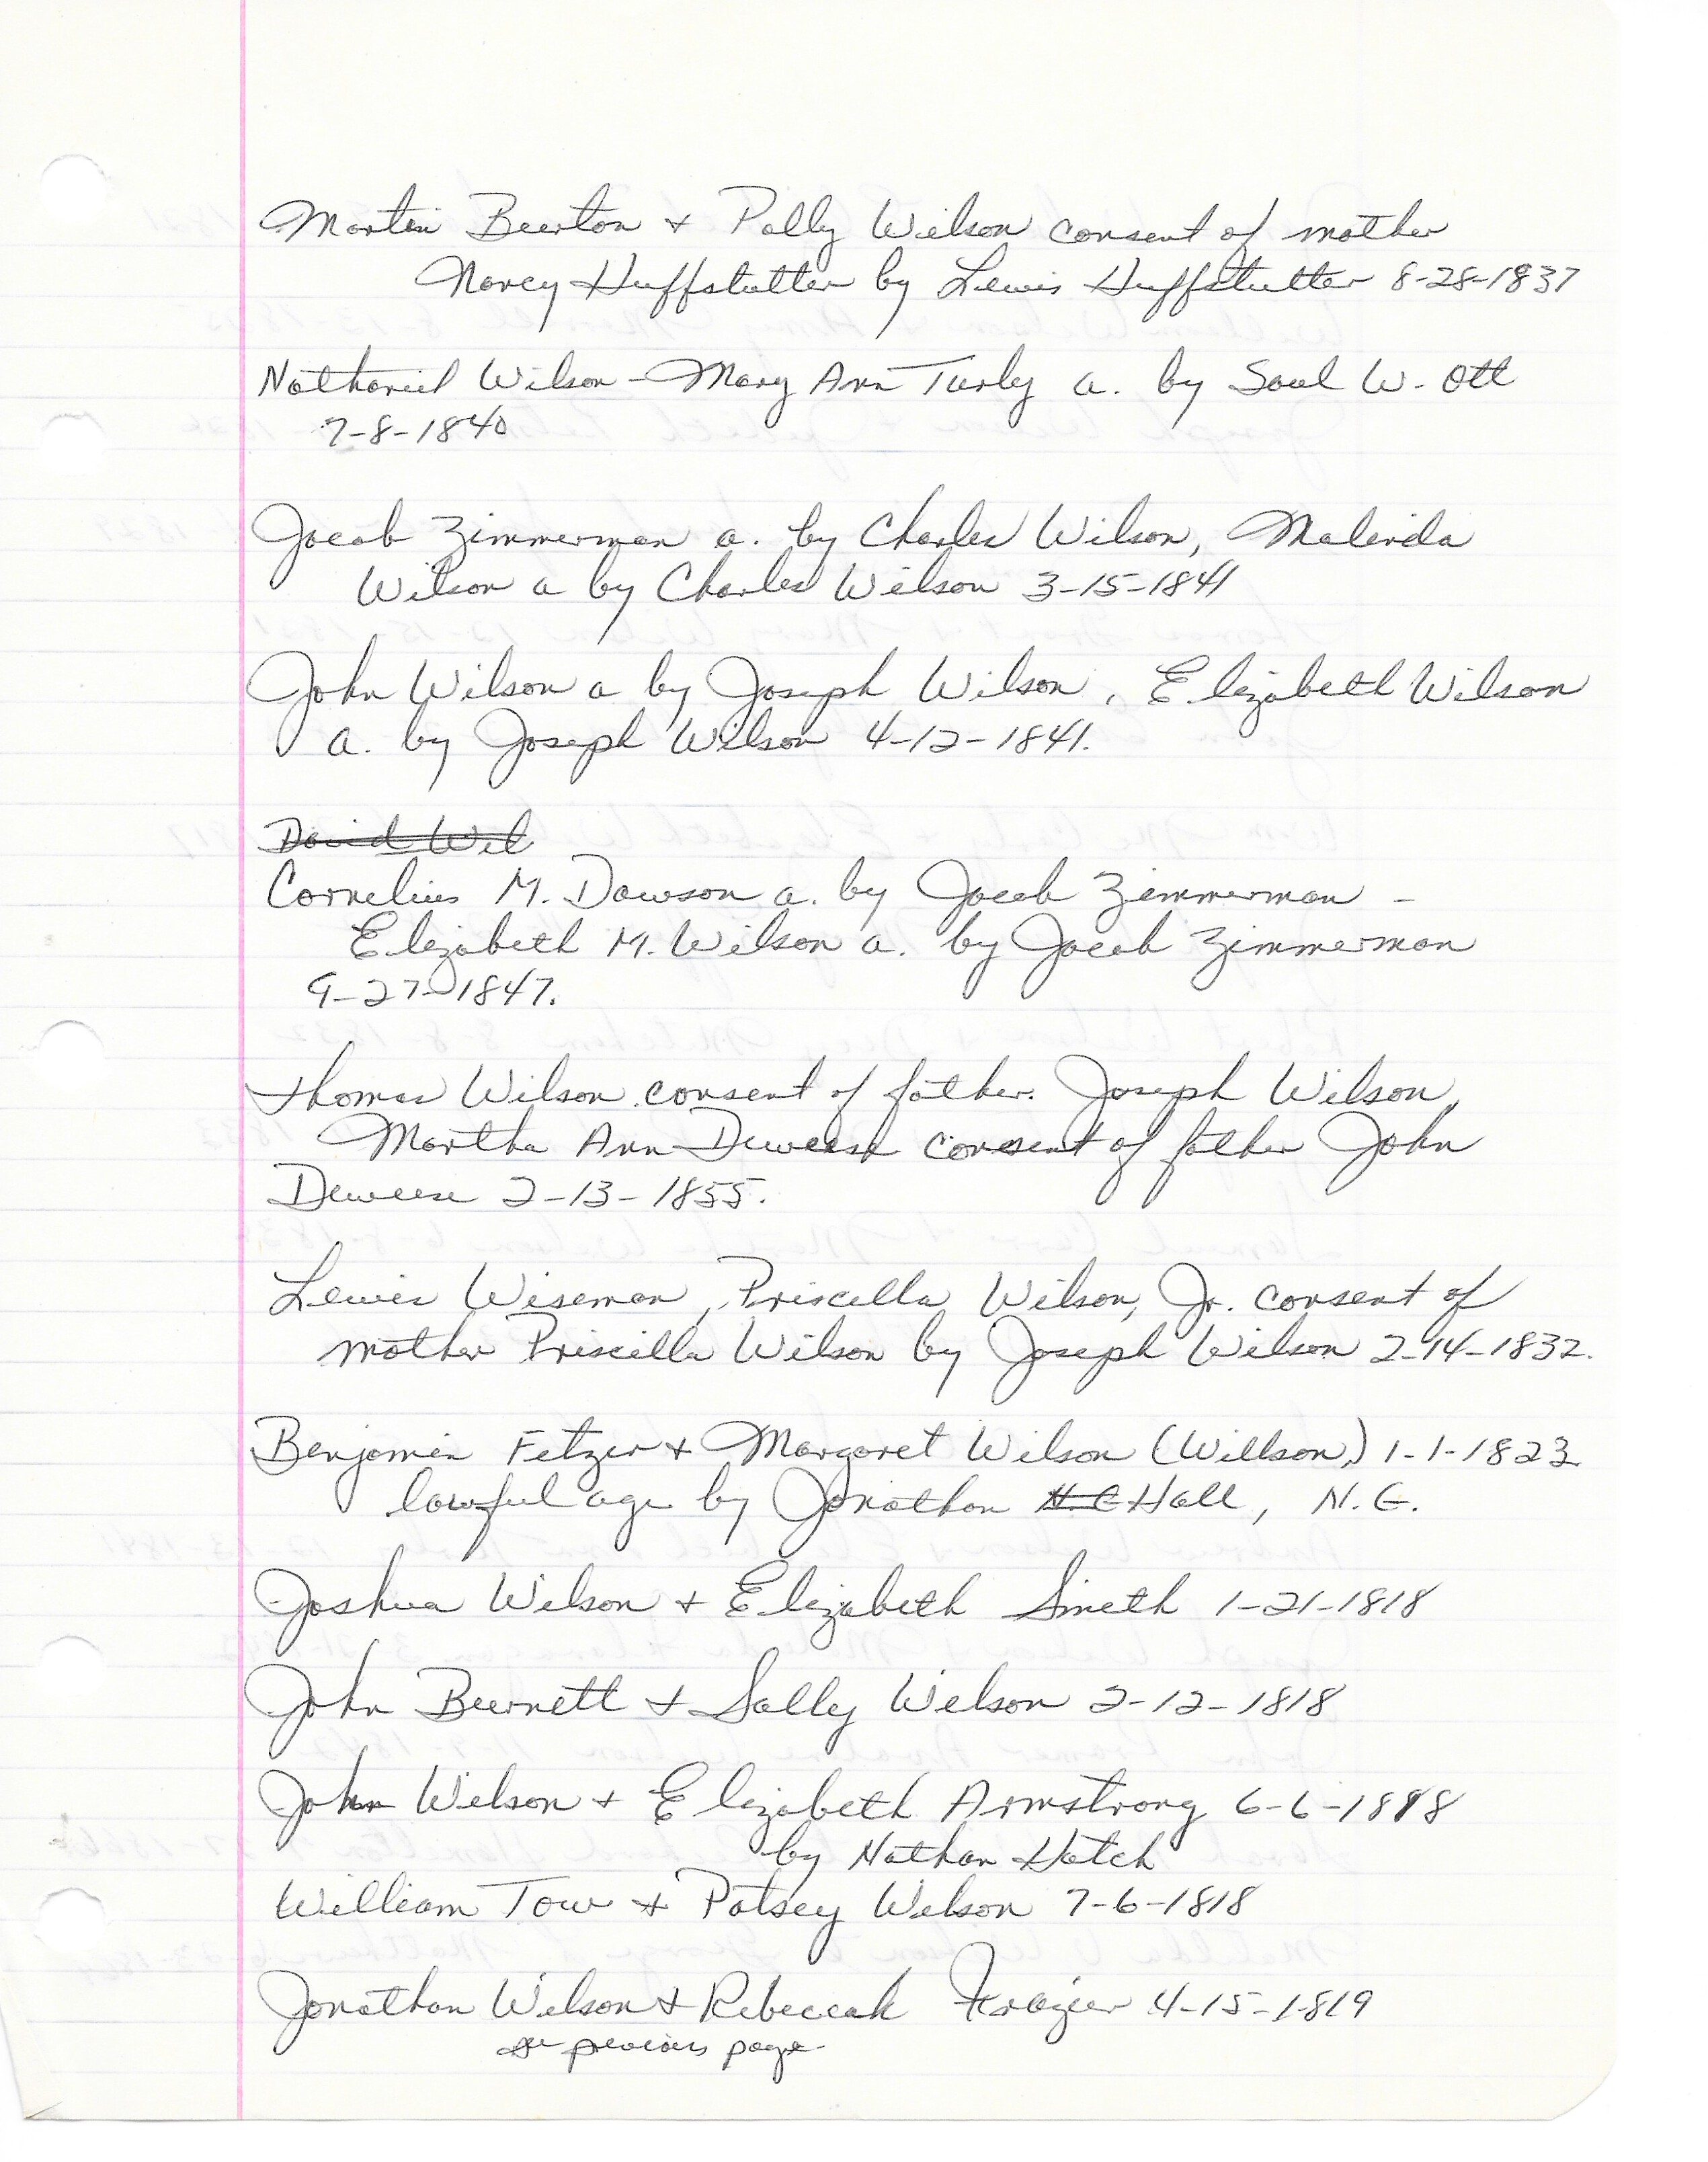 Martin Burton + Polly Wilson consent of mother
Nancy Huffstutter by Lewis Huffstutter 8-28-1837
Nathaniel Wilson - Mary Ann Turly a. by Saul W. Ott
7-8-1840
Jacob Zimmerman a. by Charles Wilson, Malinda
Wilson a by Charles Wilson 3-15-1841
John Wilson a by Joseph Wilson, Elizabeth Wilson
a. by Joseph Wilson 4-12-1841.
David Wil
Cornelius M. Dawson a. by Jacob Zimmerman -
Elizabeth M. Wilson a. by Jacob Zimmerman
9-27-1847.
Thomas Wilson consent of father Joseph Wilson,
Martha Ann Deweese consent of father John
Deweese 2-13-1855.
Lewis Wiseman, Priscilla Wilson, Jr. consent of
mother Priscilla Wilson by Joseph Wilson 2-14-1832.
Benjamin Fetzer + Margaret Wilson (Willson,) 1-1-1823
lawful age by Jonathan H C Hall, N.G.
Joshua Wilson + Elizabeth Smith 1-21-1818
John Burnett + Sally Wilson 2-12-1818
John Wilson + Elizabeth Armstrong 6-6-1818
by Nathan Hatch
William Tow + Patsey Wilson 7-6-1818
Jonathan Wilson + Rebeccah Frazier 4-15-1819
see previous page